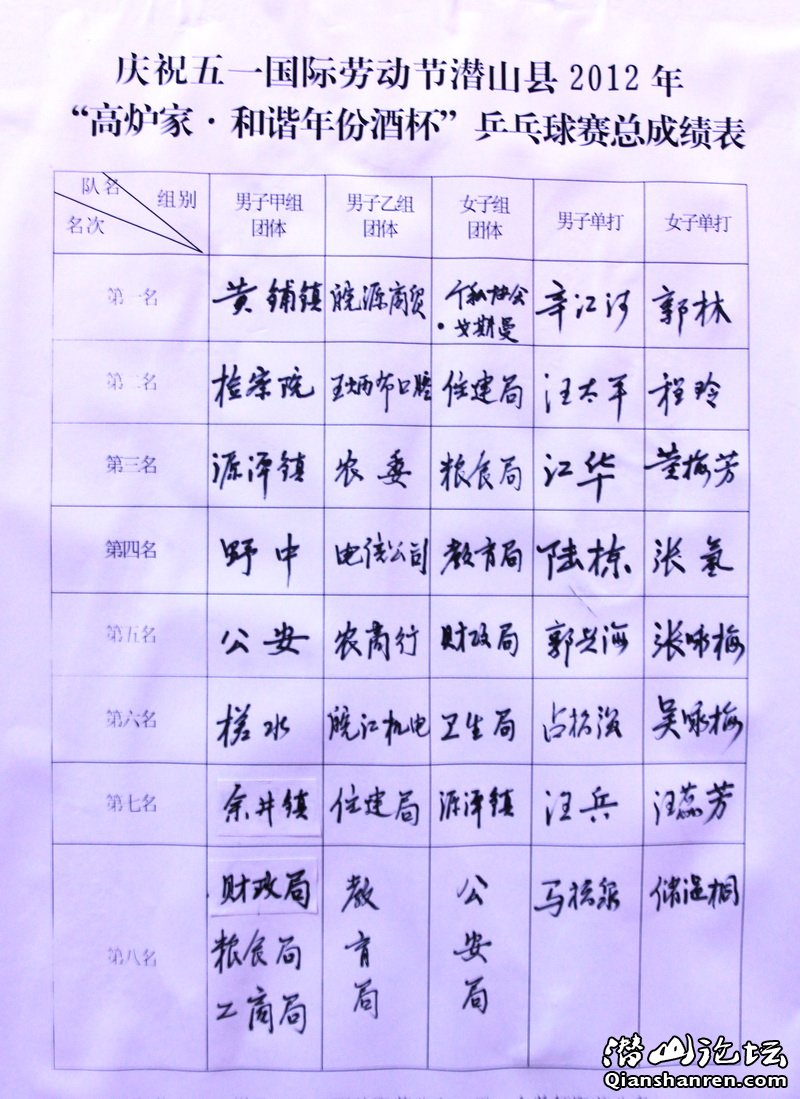 庆祝五一国际劳动节潜山县2012年
“高炉家·和谐年份酒杯”乒乓球赛总成绩表
队名 组别 名次 男子甲组团体 男子乙组团体 女子组团体 男子单打 女子单打
第一名 黄铺镇 皖源商贸 个私协会·艾斯曼 辛江河 郭林
第二名 检察院 王炳布口腔 住建局 汪太平 程玲
第三名 源潭镇 农委 粮食局 江华 黄梅芳
第四名 野中 电信公司 教育局 陆栋 张氢
第五名 公安 农商行 财政局 郭兴海 张咏梅
第六名 槎水 皖江机电 卫生局 吴咏梅
第七名 余井镇 住建局 源潭镇 汪兵 汪蕊芳
第八名 财政局 教育局 公安局
粮食局
工商局
潜山论坛
Qianshanren.com